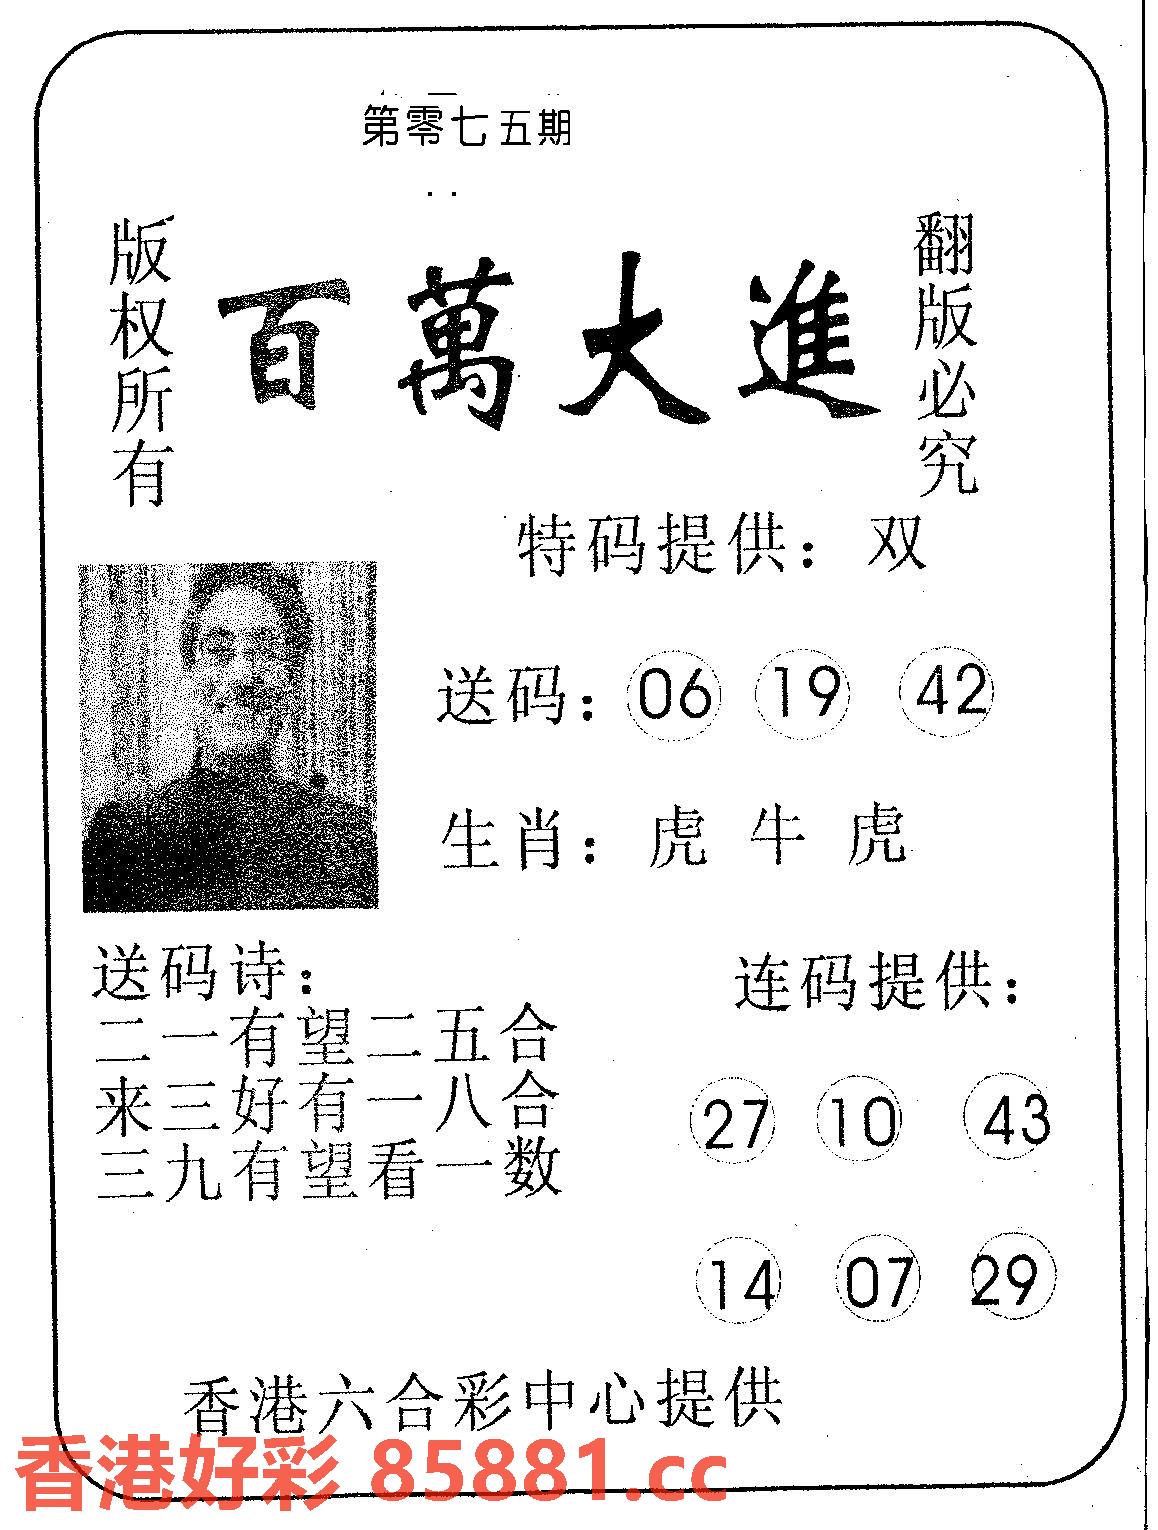 第零七五期
版权所有
百萬大進
翻版必究
特码提供：双
送码：06 19 42
生肖：虎 牛 虎
送码诗：
二一有望二五合
来三好有一八合
三九有望看一数
连码提供：
27 10 43
14 07 29
香港六合彩中心提供
香港好彩 85881.cc